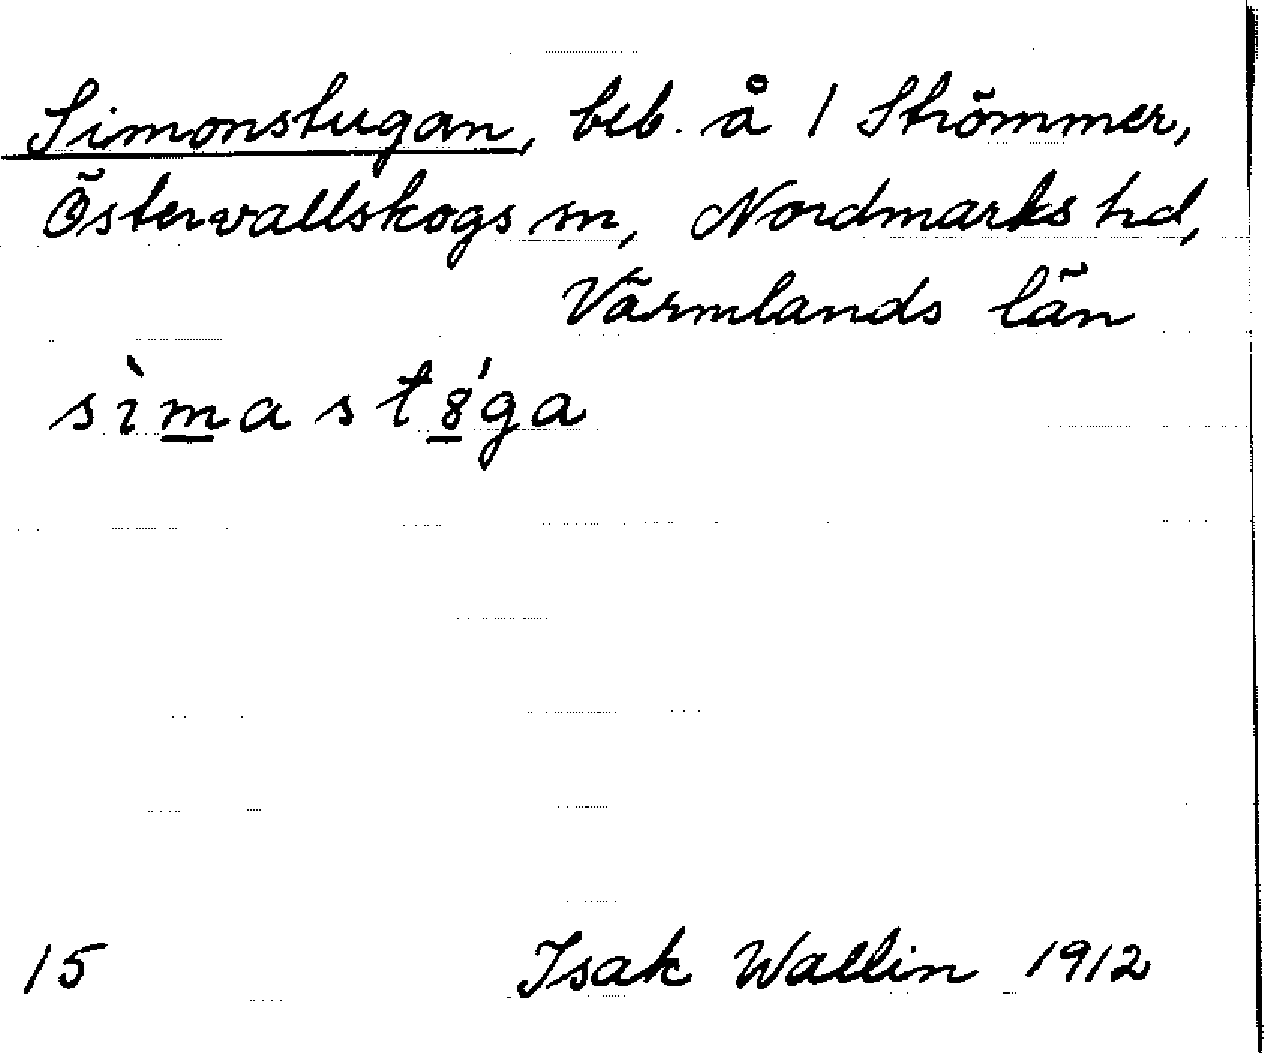 Simonstugan, beb. å 1 Strömmer,
Östervallskogs sn, Nordmarks hd,
Värmlands län
sìmast8́ga
15 Isak Wallin 1912